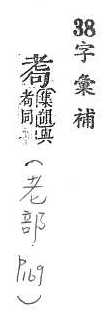 38字彙補
集韻與
同
(老部 P169)